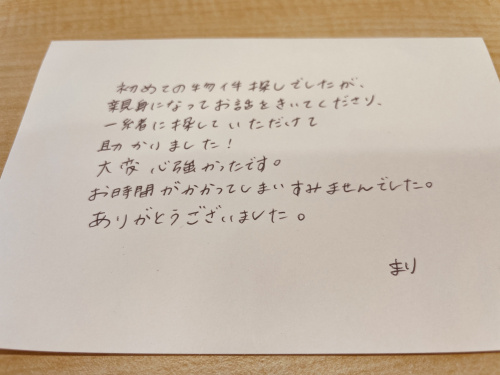 初めての物件探しでしたが、
親身になってお話をきいてくださり、
一緒に探していただけて
助かりました！
大変心強かったです。
お時間がかかってしまいすみませんでした。
ありがとうございました。
まり